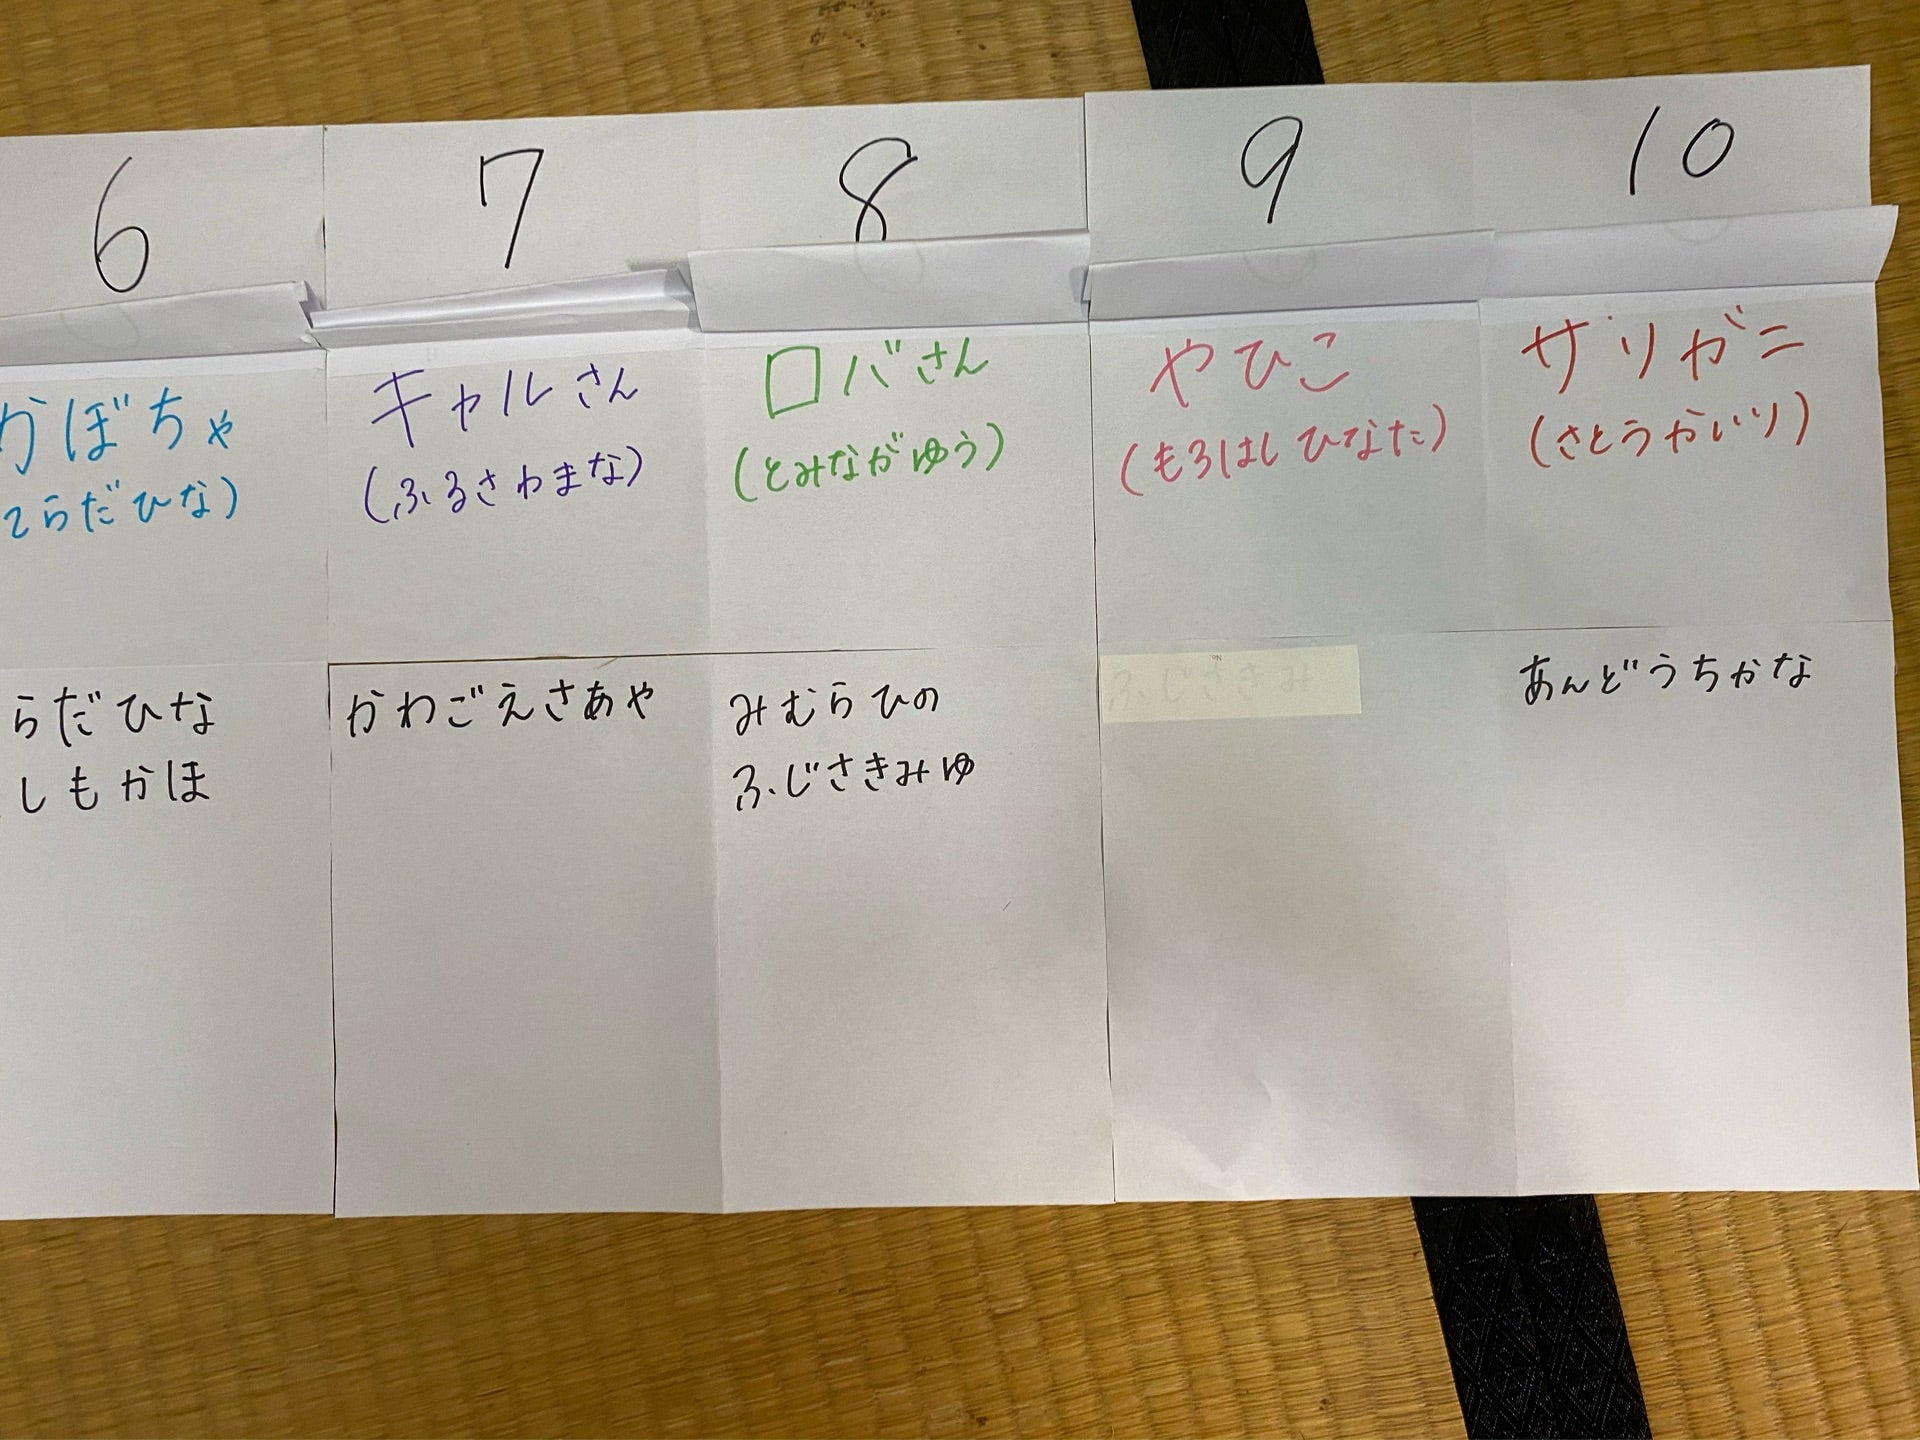 6
かぼちゃ
てらだひな)
らだひな
しもかほ
7
キャルさん
(ふるさわまな)
かわごえさあや
8
ロバさん
(とみながゆう)
みむらひの
ふじさきみゆ
9
やひこ
(もろはしひなた)
ふじさきみ
10
ザリガニ
(さとうかいり)
あんどうちかな